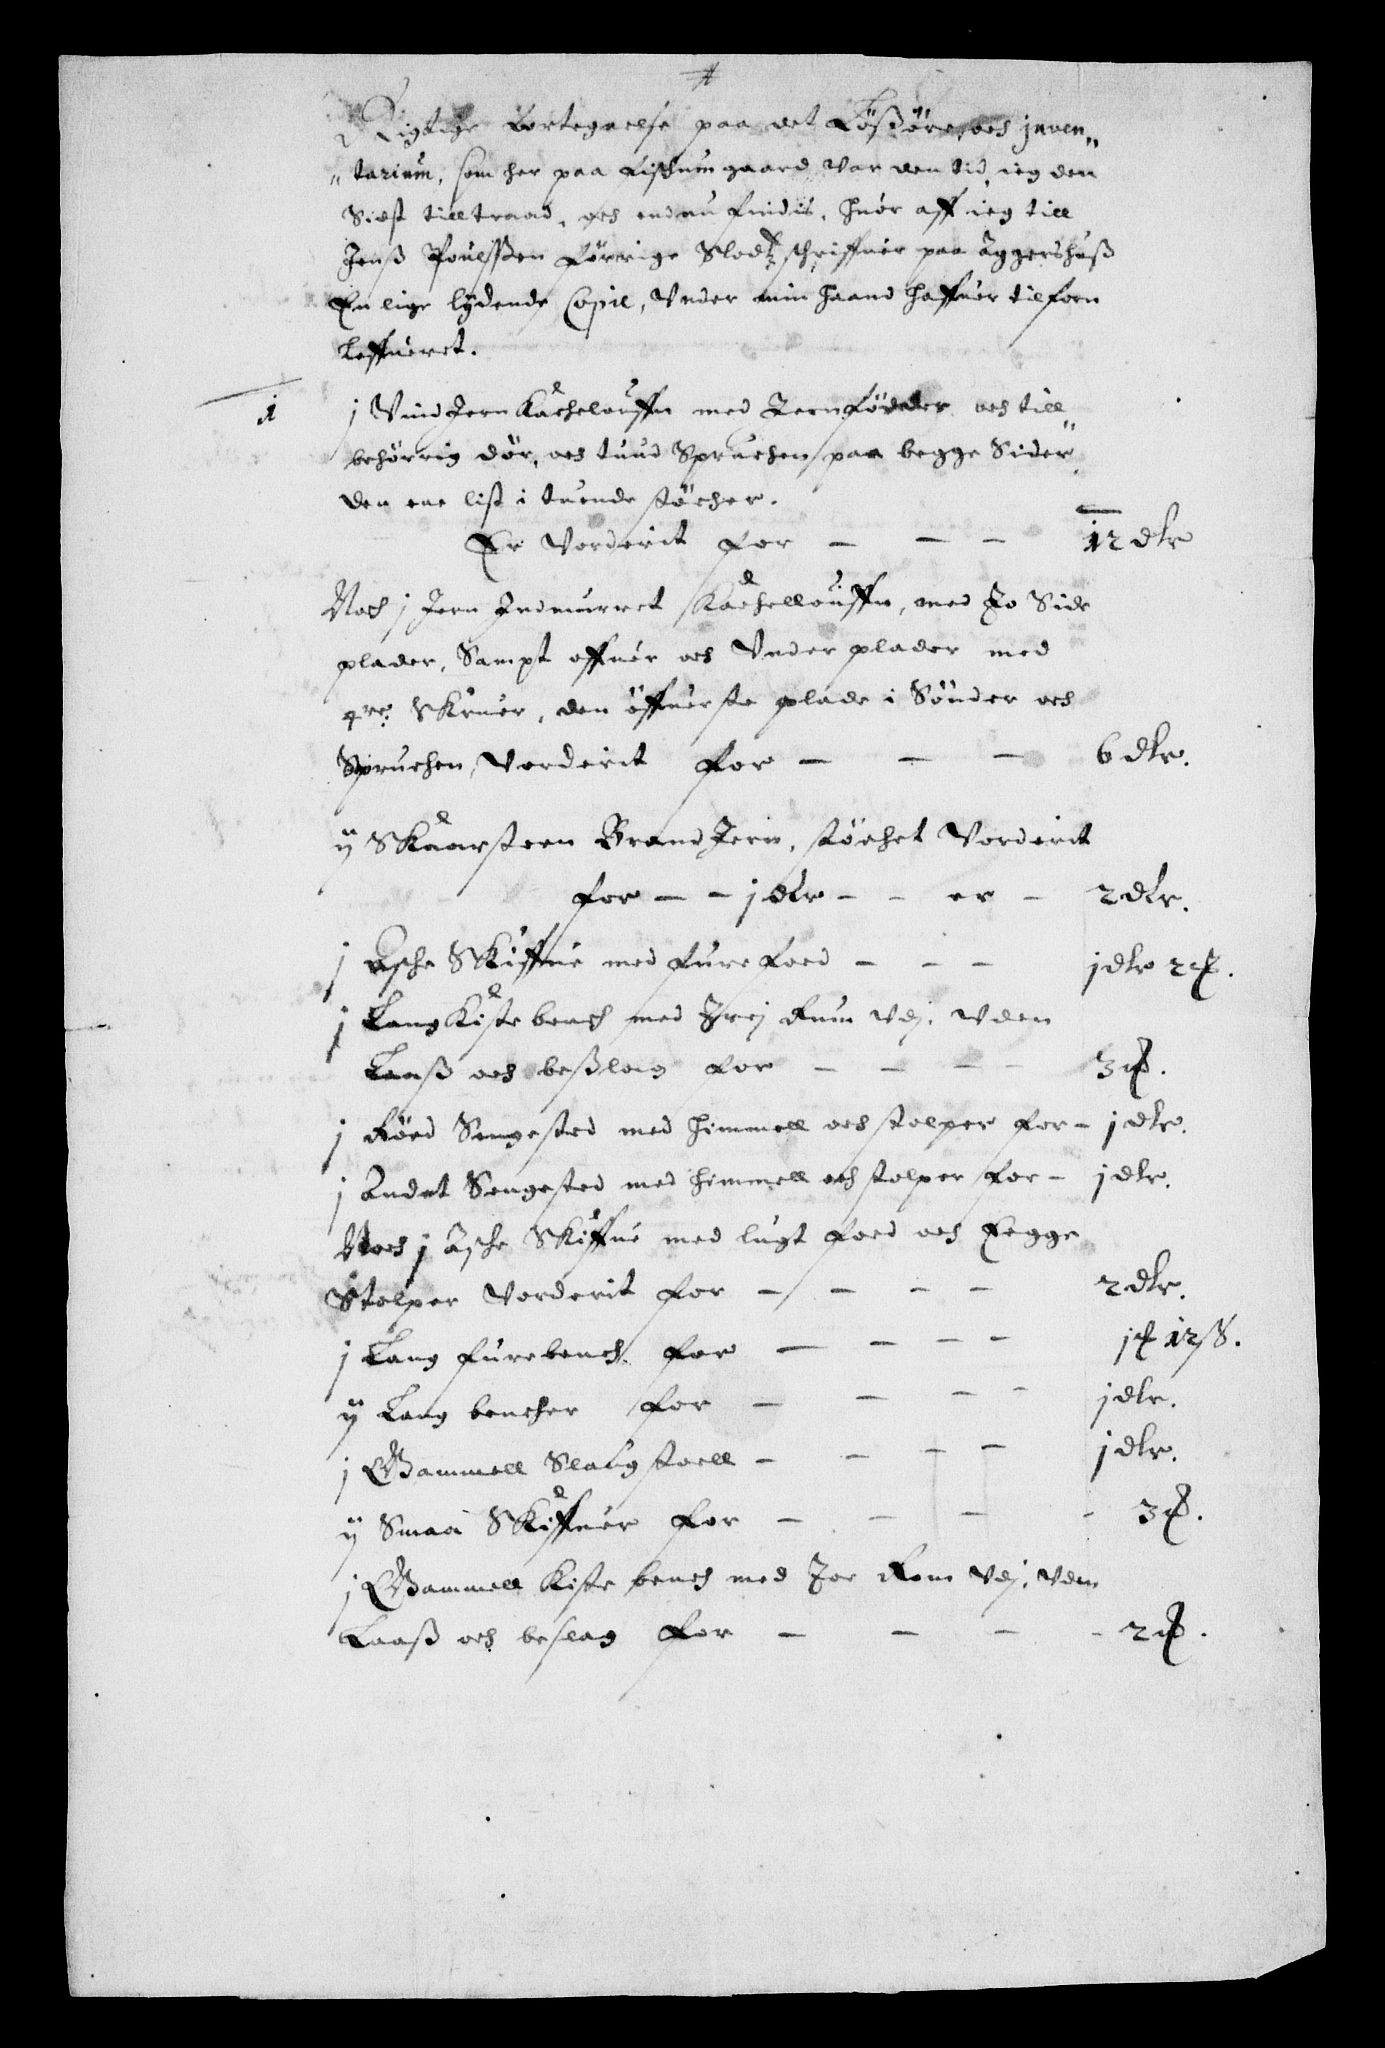 Rigtige Fortegnelse paa det Lößöre, och jnven„
„tarium, som her paa Fischum gaard Var den tid ieg den
Sidst tilltraad, och endnu findis, huor aff ieg till
Jenß Poulßen forrige Slodtz schriffuer paa Aggershuß
En lige lydende Copie, Vnder min haand haffuer tilforn
Leffueret.
1 j Vind Jern Kachelouffn med Jernfödder och till„
behörrig dör, och tuud Spruchen paa begge Sider„
den ene list i tuende stöcher.
Er Vorderit for – – – 12 dlr
Noch j Jern Indmurret Kachellouffn, med To Side
plader, Sampt offuer och Vnder plader med
4re Skruer, den öffuerste plade i Sönder och
Spruchen, Vorderit for – – – 6 dlr.
ij Skaarsteen Brand Jern, stöchet Vorderit
for – – j dlr – – er – 2 dlr.
j Asche Skiffue med fure foed – – – j dlr 2 ꝶ.
j Lang Kiste bench med Trej Rum Vdj, Vden
Laaß och beßlag for – – – – 3 ꝶ.
j Röed Sengested med himmell och stolper for – j dlr.
j Andet Sengested med himmell och stolper for – j dlr.
Noch j Asche Skiffue med lugt foed och Eegge
Stolper Vorderit for – – – – 2 dlr.
j Lang furebench for – – – – j ꝶ 12 ß.
ij Lang bencher for – – – – j dlr.
j Gammell Slaugstoell – – – – j dlr.
ij Smaa Skiffuer for – – – – 3 ꝶ.
j Gammell Kiste bench med Toe Rom Vdj, Vden
Laaß och beslag for – – – – 2 ꝶ.